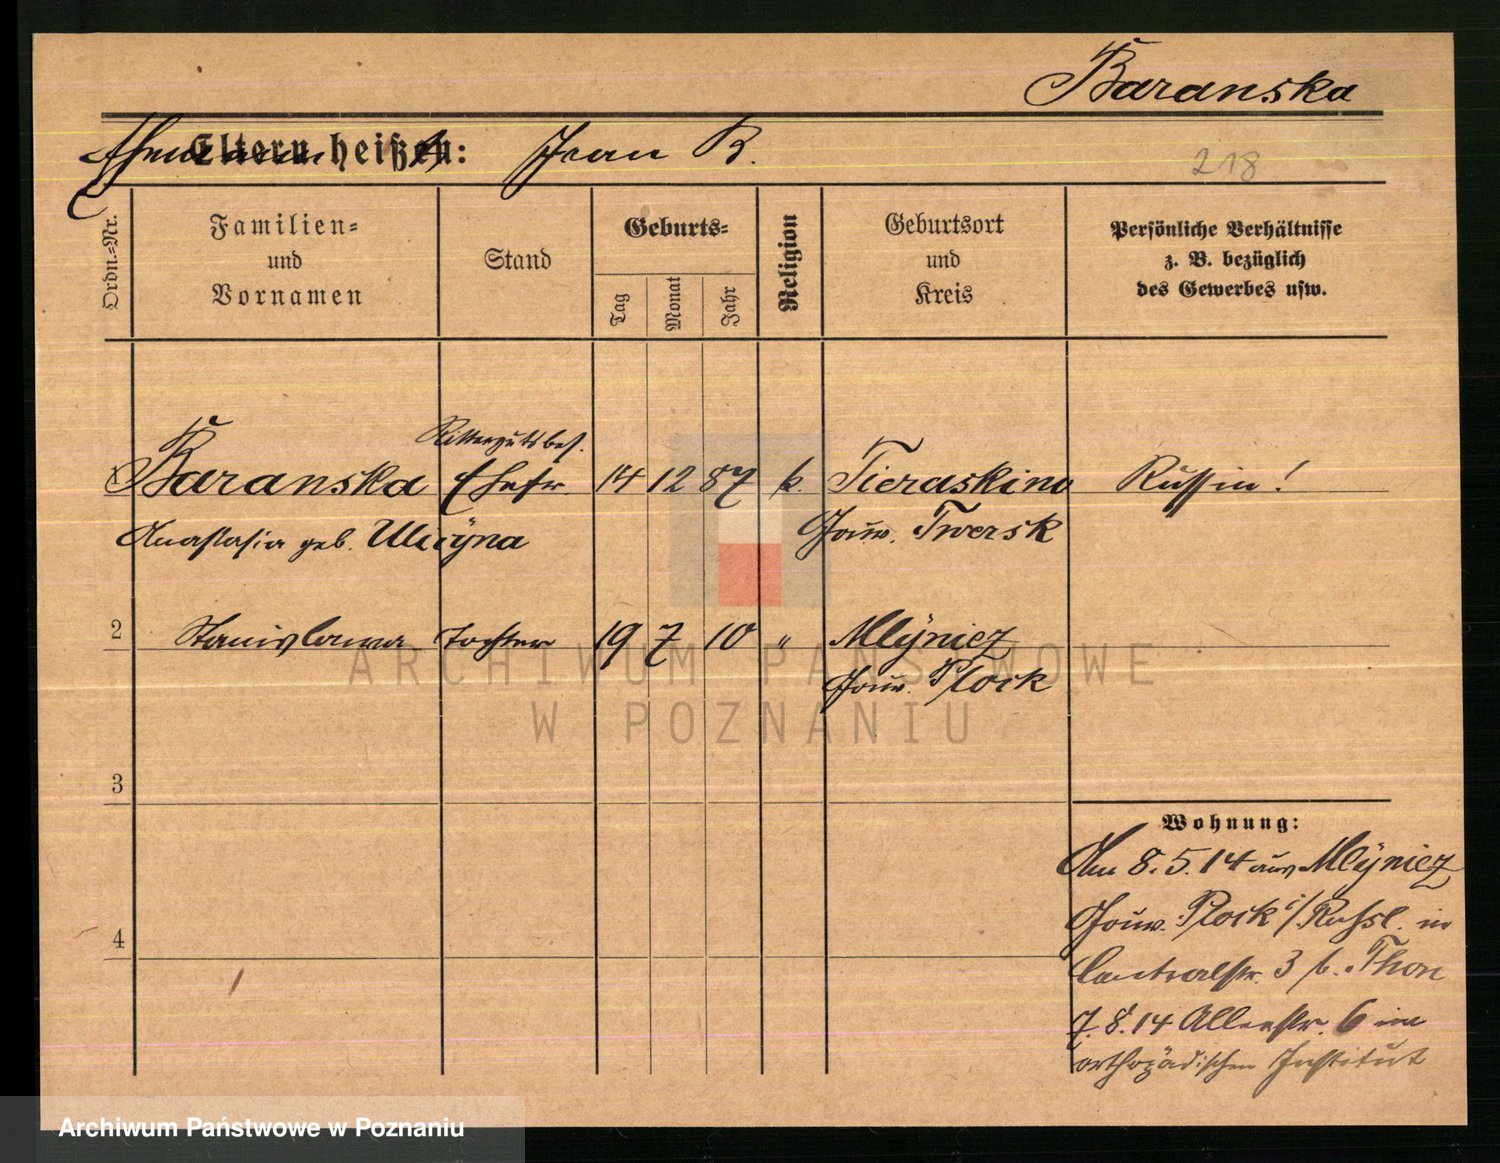 Baranska
Ehemann
Eltern heißen: Jean B.
218
Ordn.-Nr.
Familien-
und
Vornamen
Stand
Geburts-
Tag
Monat
Jahr
Religion
Geburtsort
und
Kreis
Persönliche Verhältnisse
z. B. bezüglich
des Gewerbes usw.
Rittergutsbes.
Baranska Ehefr. 14 12 87 k. Tieraskino Russin!
Anastasia geb. Gouv. Twersk
2 Stanislawa Tochter 19 7 10 " Mlÿniez
Gouv. Plock
3
Wohnung:
Am 8.5.14 aus Mlÿniez
Gouv. Plock i/Russl. in
4
Centralstr. 3 b. Thon
7.8.14 Allerstr. 6 im
orthopädischen Institut
ARCHIWUM PAŃSTWOWE
W POZNANIU
Archiwum Państwowe w Poznaniu